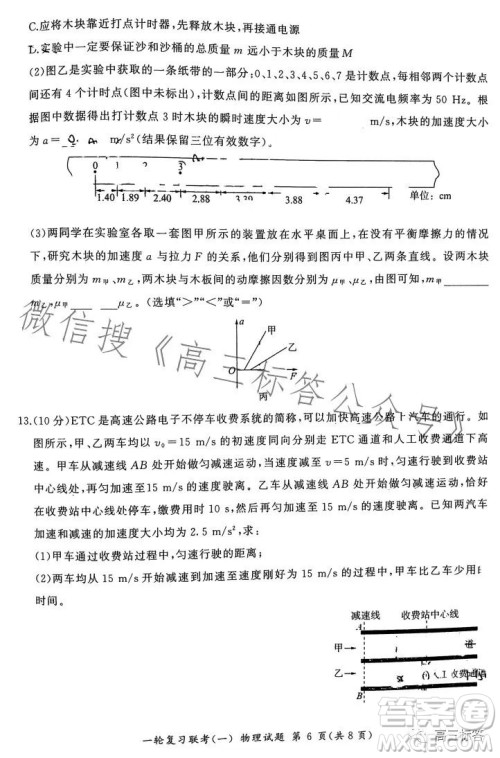 C.应将木块靠近打点计时器，先释放木块，再接通电源
D.实验中一定要保证沙和沙桶的总质量 m 远小于木块的质量 M
(2)图乙是实验中获取的一条纸带的一部分：0、1、2、3、4、5、6、7 是计数点，每相邻两个计数点
间还有 4 个计时点(图中未标出)，计数点间的距离如图所示，已知交流电频率为 50 Hz。根
据图中数据得出打计数点 3 时木块的瞬时速度大小为 v= m/s，木块的加速度大小
为 a= m/s²(结果保留三位有效数字)。
0 1 2 3
1.40 1.89 2.40 2.88 3.39 3.88 4.37 单位：cm
(3)两同学在实验室各取一套图甲所示的装置放在水平桌面上，在没有平衡摩擦力的情况
下，研究木块的加速度 a 与拉力 F 的关系，他们分别得到图丙中甲、乙两条直线。设两木块
质量分别为 m甲、m乙，两木块与木板间的动摩擦因数分别为 μ甲、μ乙，由图可知，m甲
m乙，μ甲 μ乙。(选填“>”“<”或“=”)
a
甲
乙
O F
丙
微信搜《高三标答公众号》
13.(10 分)ETC 是高速公路电子不停车收费系统的简称，可以加快高速公路上汽车的通行。如
图所示，甲、乙两车均以 v₀=15 m/s 的速度同向分别走 ETC 通道和人工收费通道下高
速。甲车从减速线 AB 处开始做匀减速运动，当速度减至 v=5 m/s 时，匀速行驶到收费站
中心线处，再匀加速至 15 m/s 的速度驶离。乙车从减速线 AB 处开始做匀减速运动，恰好
在收费站中心线处停车，缴费用时 10 s，然后匀加速至 15 m/s 的速度驶离。已知两汽车
加速和减速的加速度大小均为 2.5 m/s²，求：
(1)甲车通过收费站过程中，匀速行驶的距离；
(2)两车均从 15 m/s 开始减速到加速至速度刚好为 15 m/s 的过程中，甲车比乙车少用
时间。
减速线 收费站中心线
A
甲 道
乙 人工收费通
B
一轮复习联考(一) 物理试题 第 6 页(共 8 页)
高三标答